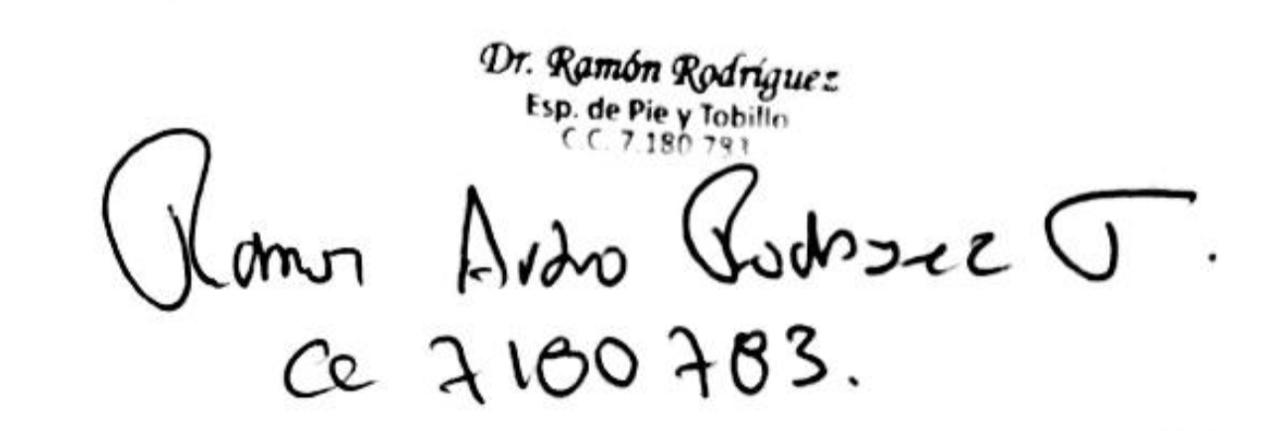 Dr. Ramón Rodríguez
Esp. de Pie y Tobillo
C.C. 7.180.793
Ramon Rodriguez T.
CC 7180783.